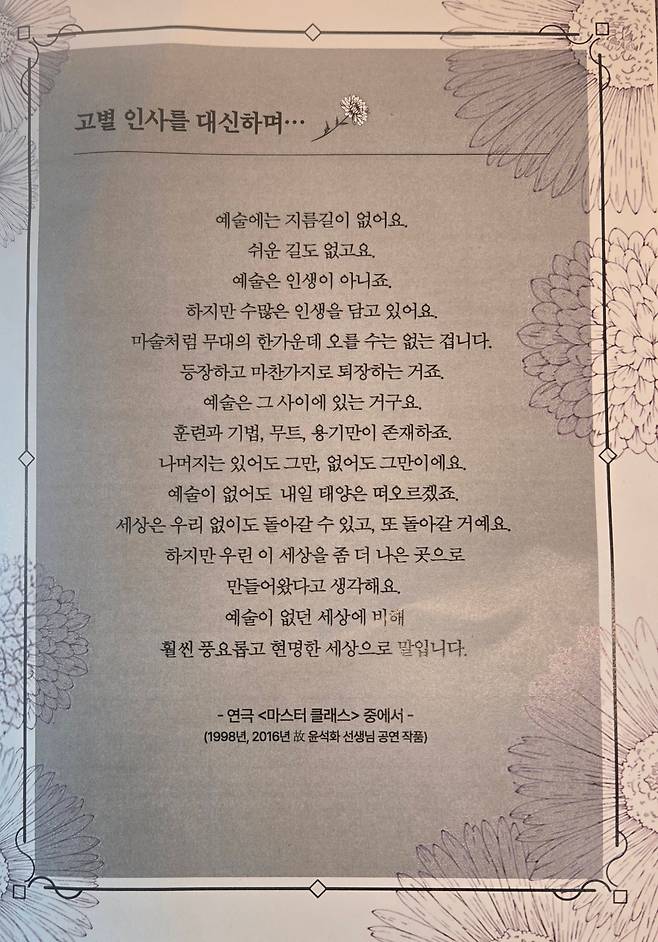 고별 인사를 대신하며…
예술에는 지름길이 없어요.
쉬운 길도 없고요.
예술은 인생이 아니죠.
하지만 수많은 인생을 담고 있어요.
마술처럼 무대의 한가운데 오를 수는 없는 겁니다.
등장하고 마찬가지로 퇴장하는 거죠.
예술은 그 사이에 있는 거구요.
훈련과 기법, 무트, 용기만이 존재하죠.
나머지는 있어도 그만, 없어도 그만이에요.
예술이 없어도 내일 태양은 떠오르겠죠.
세상은 우리 없이도 돌아갈 수 있고, 또 돌아갈 거예요.
하지만 우린 이 세상을 좀 더 나은 곳으로
만들어왔다고 생각해요.
예술이 없던 세상에 비해
훨씬 풍요롭고 현명한 세상으로 말입니다.
- 연극 <마스터 클래스> 중에서 -
(1998년, 2016년 故 윤석화 선생님 공연 작품)